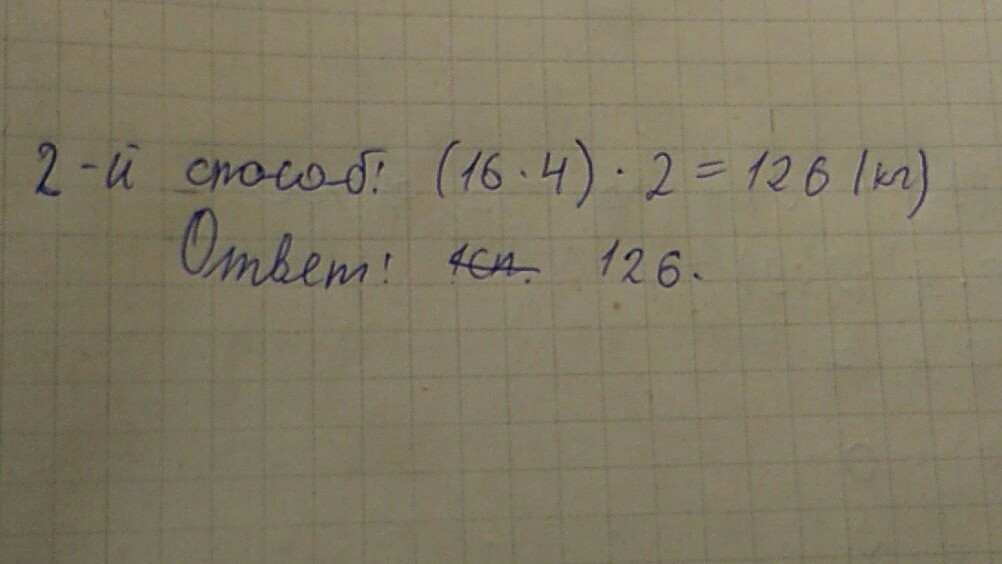 2-й способ: (16·4)·2=126 (кг)
Ответ: 1сп. 126.